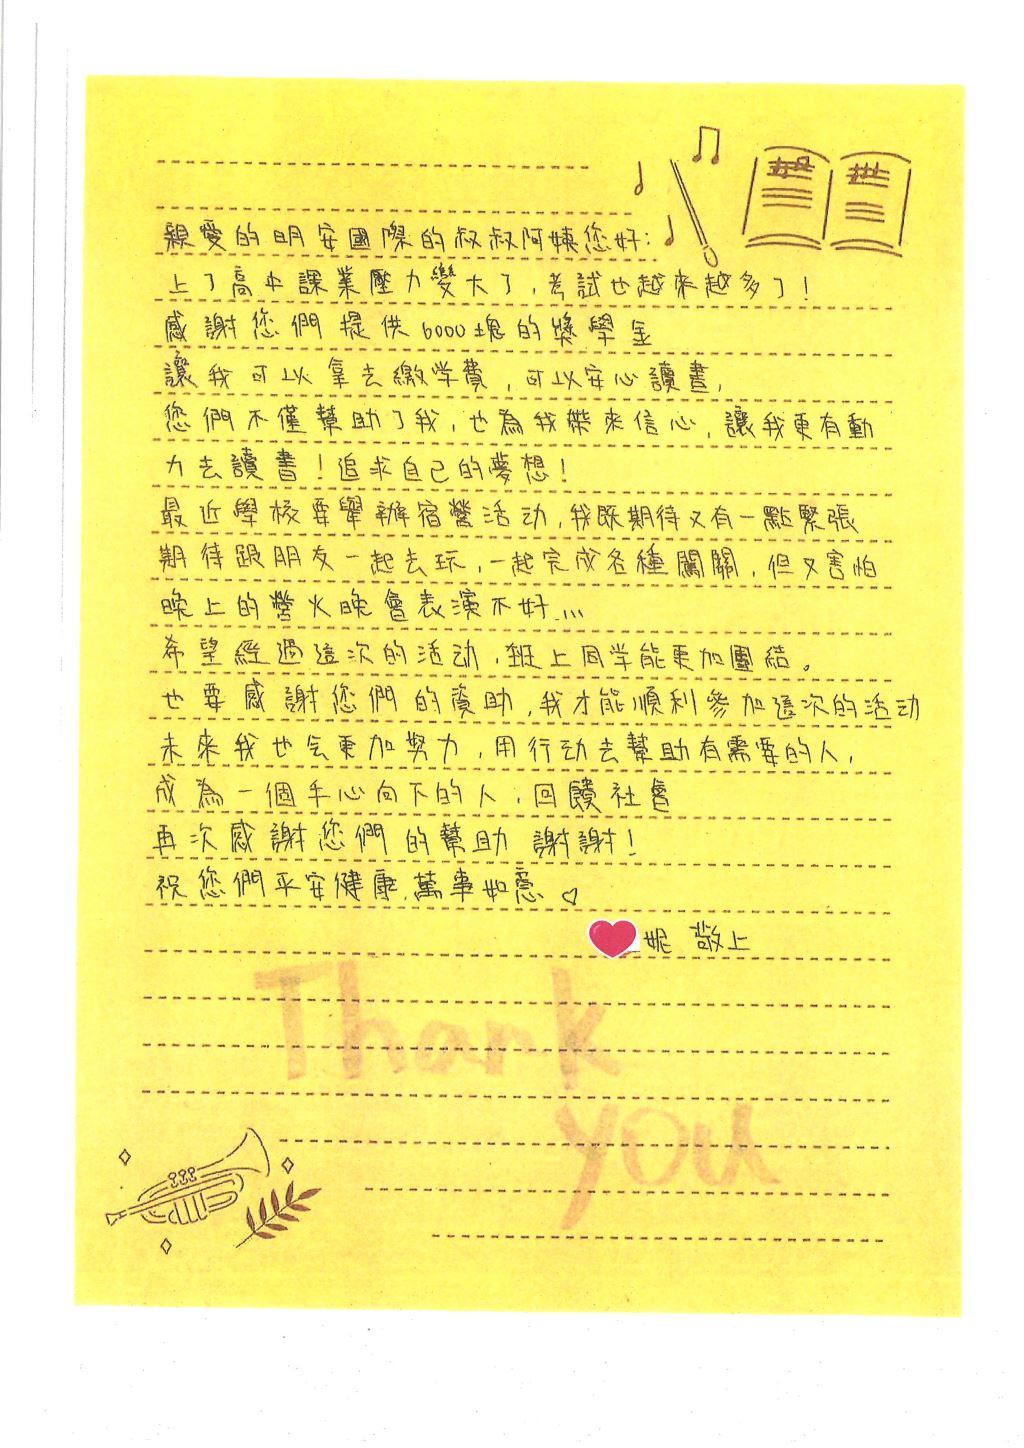 親愛的明安國際的叔叔阿姨您好:
上了高中課業壓力變大了,考試也越來越多了!
感謝您們提供6000塊的獎學金
讓我可以拿去繳学費,可以安心讀書,
您們不僅幫助了我,也為我帶來信心,讓我更有動
力去讀書!追求自己的夢想!
最近學校要舉辦宿營活动,我既期待又有一點緊張
期待跟朋友一起去玩,一起完成各種闖關,但又害怕
晚上的營火晚會表演不好...
希望經過這次的活动,班上同学能更加團結。
也要感謝您們的資助,我才能順利參加這次的活动
未來我也会更加努力,用行动去幫助有需要的人,
成為一個手心向下的人,回饋社會
再次感謝您們的幫助 謝謝!
祝您們平安健康,萬事如意♡
妮 敬上
Thank
you